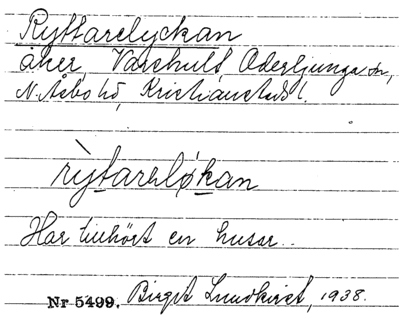 Ryttarelyckan
åker, Varshult, Oderljunga sn,
N. Åsbo hd, Kristianstads l.
rỳtarəløkan
Har tillhört en husar.
Nr 5499. Birgit Lundkvist, 1938.